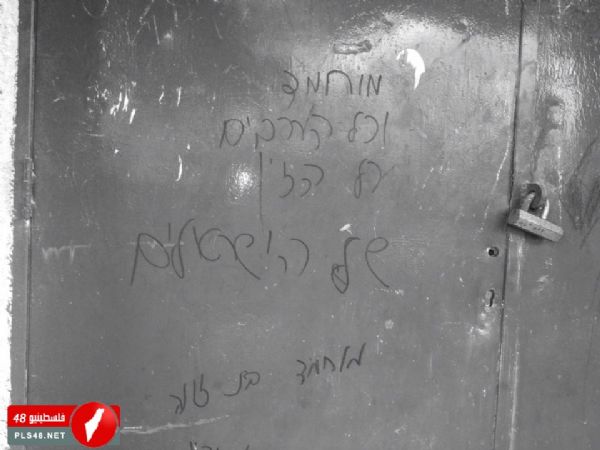 מוחמד
וכל הערבים
על הזין
של הישראלים
מוחמד בן זונה
فلسطينيو 48
PLS48.NET